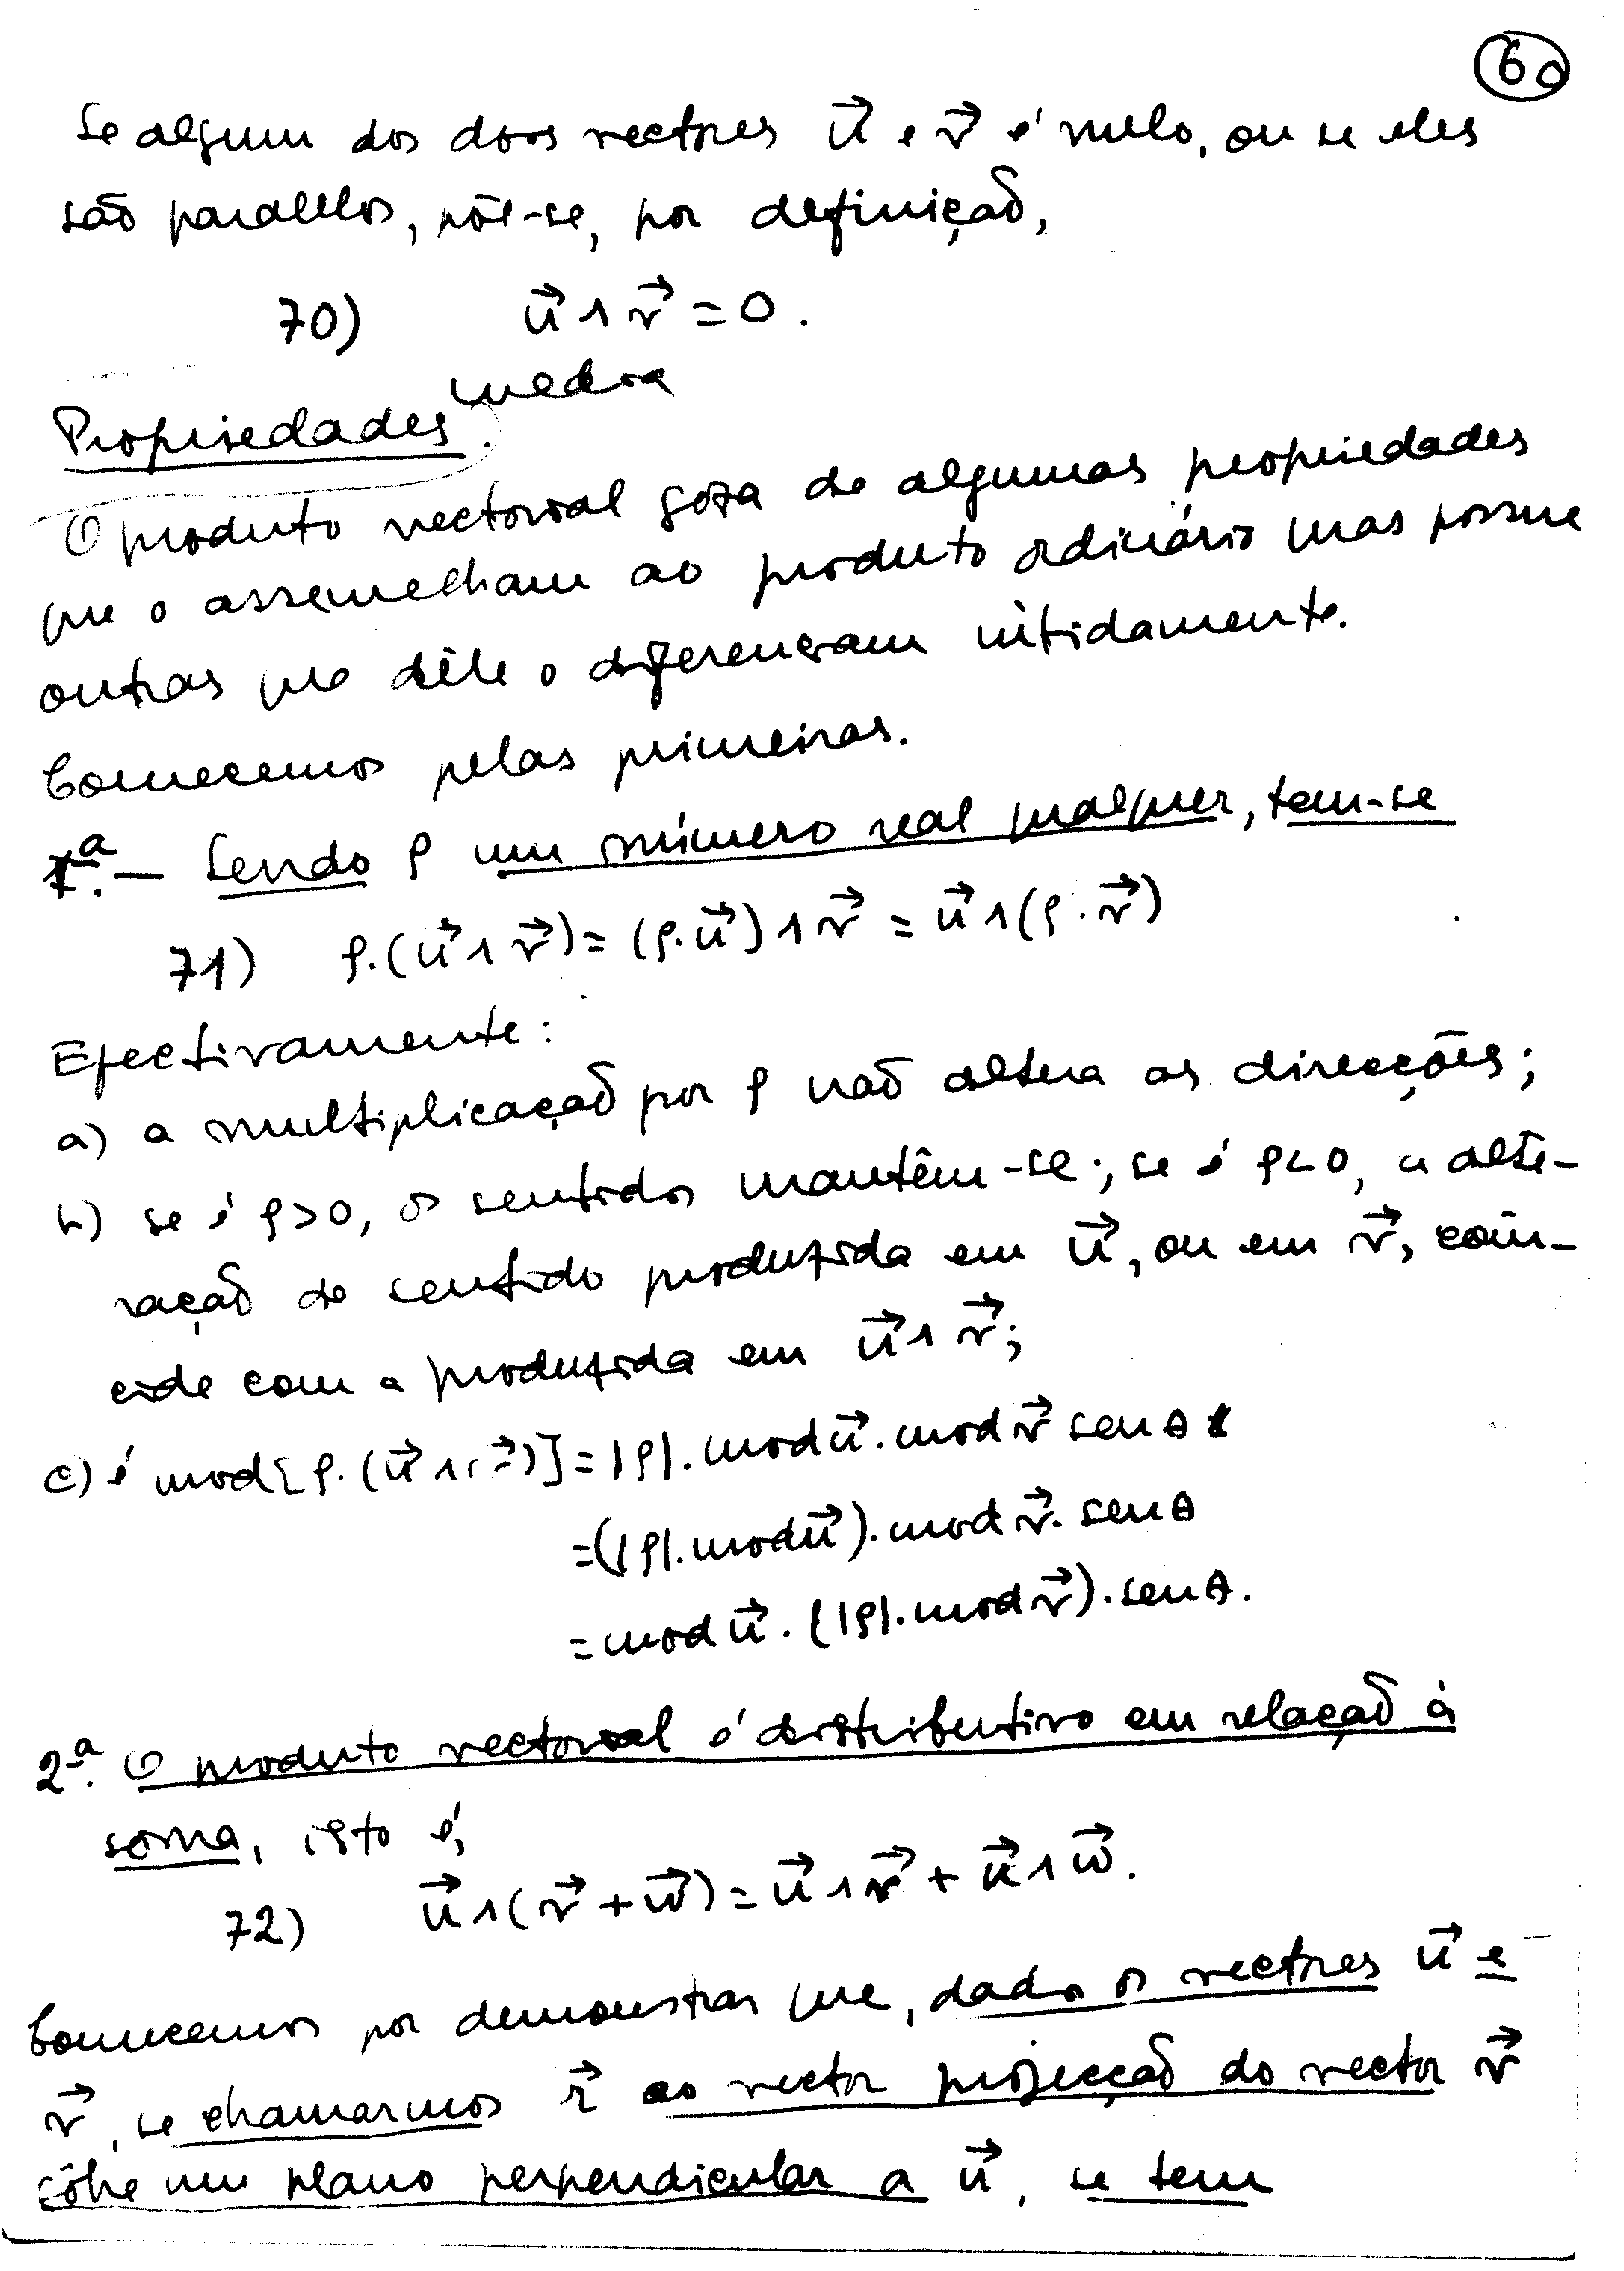 60
Se algum dos dois vectores u⃗ e v⃗ é nulo, ou se eles
são paralelos, põe-se, por definição,
70) u⃗ ∧ v⃗ = 0.
Propriedades.
O produto vectorial goza de algumas propriedades
que o assemelham ao produto ordinário mas possue
outras que dêle o diferençam nitidamente.
Comecemos pelas primeiras.
1ª. — Sendo ρ um número real qualquer, tem-se
71) ρ.(u⃗ ∧ v⃗) = (ρ.u⃗) ∧ v⃗ = u⃗ ∧ (ρ.v⃗)
Efectivamente:
a) a multiplicação por ρ não altera as direcções;
b) se é ρ>0, os sentidos mantêm-se; se é ρ<0, a alte-
ração de sentido produzida em u⃗, ou em v⃗, coin-
cide com a produzida em u⃗ ∧ v⃗;
c) é mod[ρ.(u⃗ ∧ v⃗)] = |ρ|.mod u⃗.mod v⃗ sen θ
=(|ρ|.mod u⃗).mod v⃗.sen θ
=mod u⃗.(|ρ|.mod v⃗).sen θ.
2ª. O produto vectorial é distributivo em relação à
soma, isto é,
72) u⃗ ∧ (v⃗ + w⃗) = u⃗ ∧ v⃗ + u⃗ ∧ w⃗.
Comecemos por demonstrar que, dados os vectores u⃗ e
v⃗, se chamarmos r⃗ ao vector projecção do vector v⃗
sôbre um plano perpendicular a u⃗, se tem